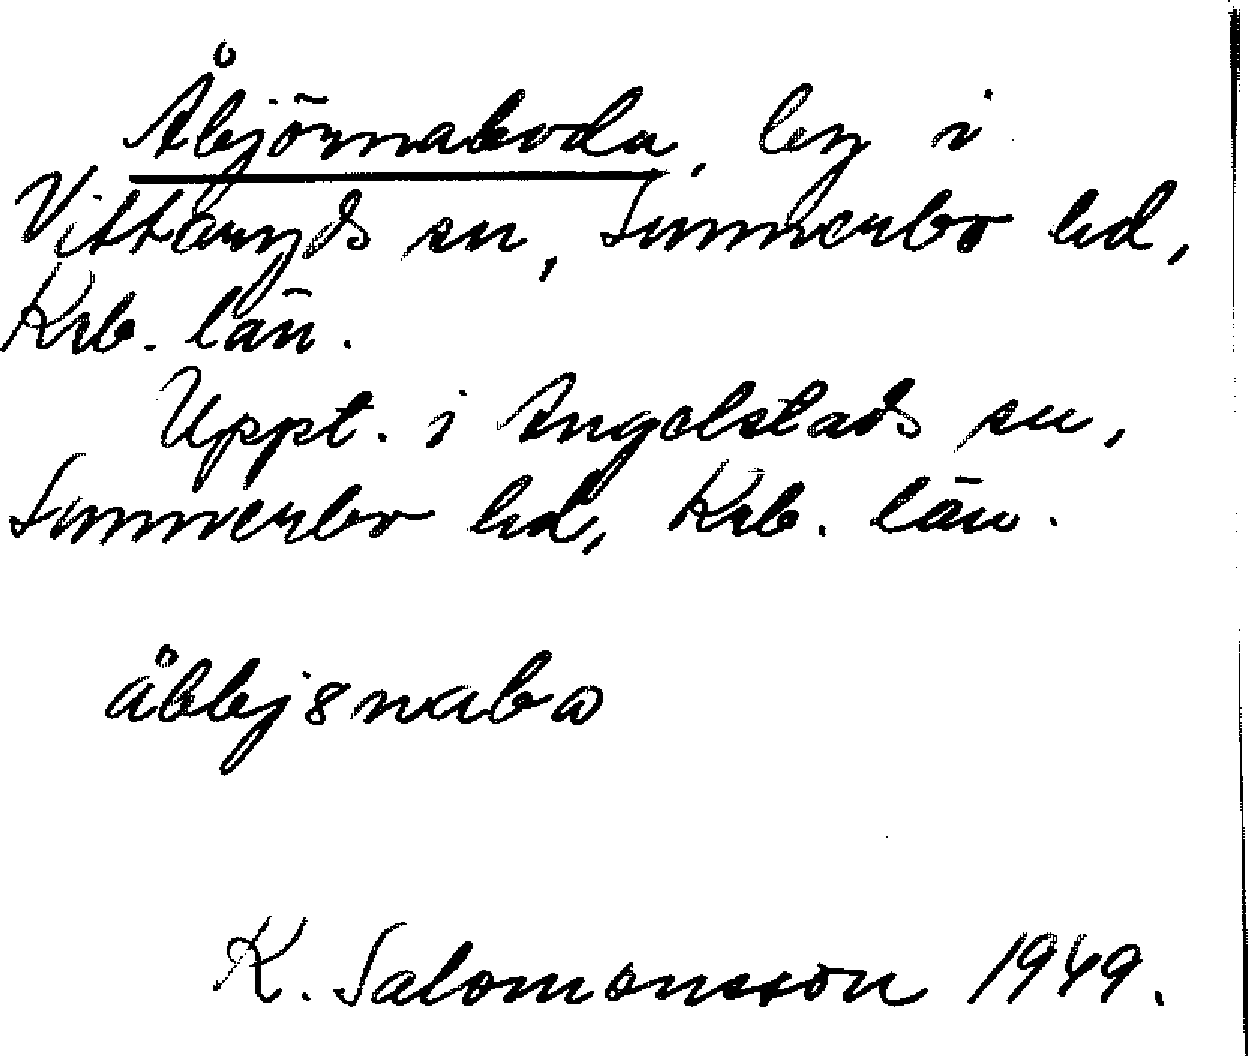 Åbjörnaboda, by i
Vittaryds sn, Sunnerbo hd,
Krb. län.
Uppt. i Angelstads sn,
Sunnerbo hd, Krb. län.
åbbjsnabω
K. Salomonsson 1949.